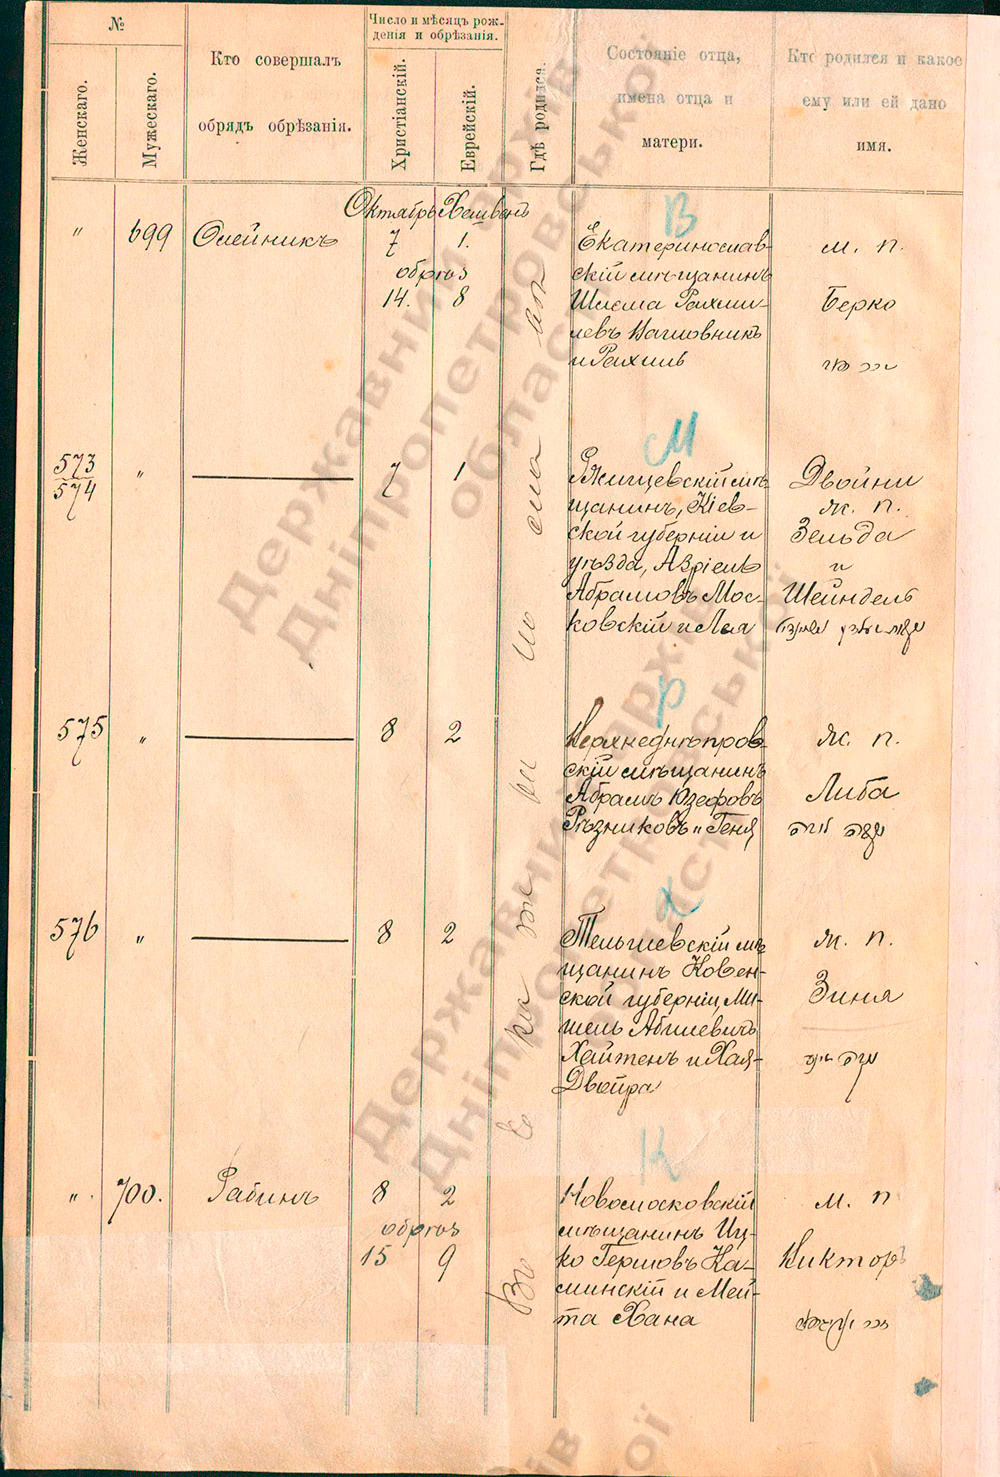 №
Женскаго.
Мужескаго.
Кто совершалъ
обрядъ обрѣзанія.
Число и мѣсяцъ рож-
денія и обрѣзанія.
Христіанскій.
Еврейскій.
Гдѣ родился.
Состояніе отца,
имена отца и
матери.
Кто родился и какое
ему или ей дано
имя.
Октябрь Хешванъ
" 699 Олейникъ 7 1.
обрѣз
14. 8
В
Екатеринослав-
скій мѣщанинъ
Шлема Рахми-
левъ
и Рахиль
м. п.
Берко
573
574 " 7 1
М
Ржищевскій мѣ-
щанинъ, Кіев-
ской губерніи и
уѣзда, Азріель
Абрамовъ Мос-
ковскій и Лея
Двойни
ж. п.
Зельда
и
Шейндель
575 " 8 2
Р
Верхнеднѣпров-
скій мѣщанинъ
Абрамъ Юзефовъ
Рѣзниковъ и Геня
ж. п.
Либа
576 " 8 2
Х
Тельшевскій мѣ-
щанинъ Ковен-
ской губерніи, Ми-
хель Абелевичъ
Хайтенъ и Хая-
Двейра
ж. п.
Зиня
" 700. Рабинъ 8 2
обрѣз
15 9
К
Новомосковскій
мѣщанинъ Иц-
ко Гершовъ Ка-
минскій и Мей-
та Хана
м. п
Викторъ
Державний архів
Дніпропетровської
області
Державний архів
Дніпропетровської
області